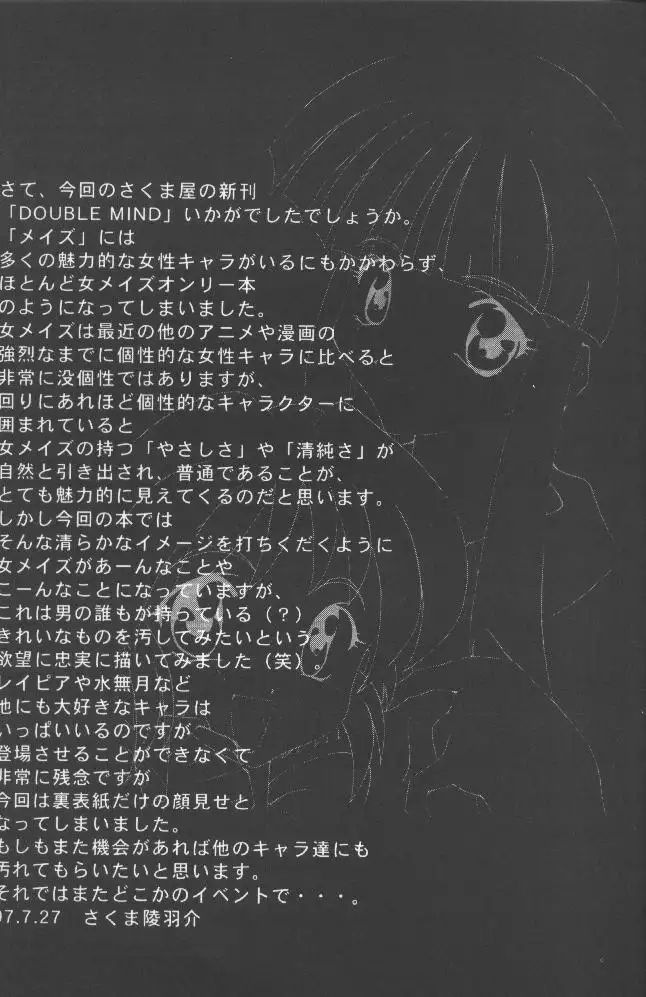 さて、今回のさくま屋の新刊
「DOUBLE MIND」いかがでしたでしょうか。
「メイズ」には
多くの魅力的な女性キャラがいるにもかかわらず、
ほとんど女メイズオンリー本
のようになってしまいました。
女メイズは最近の他のアニメや漫画の
強烈なまでに個性的な女性キャラに比べると
非常に没個性ではありますが、
回りにあれほど個性的なキャラクターに
囲まれていると
女メイズの持つ「やさしさ」や「清純さ」が
自然と引き出され、普通であることが、
とても魅力的に見えてくるのだと思います。
しかし今回の本では
そんな清らかなイメージを打ちくだくように
女メイズがあーんなことや
こーんなことになっていますが、
これは男の誰もが持っている（？）
きれいなものを汚してみたいという
欲望に忠実に描いてみました（笑）。
レイピアや水無月など
他にも大好きなキャラは
いっぱいいるのですが
登場させることができなくて
非常に残念ですが
今回は裏表紙だけの顔見せと
なってしまいました。
もしもまた機会があれば他のキャラ達にも
汚れてもらいたいと思います。
それではまたどこかのイベントで・・・。
97.7.27　さくま陵羽介